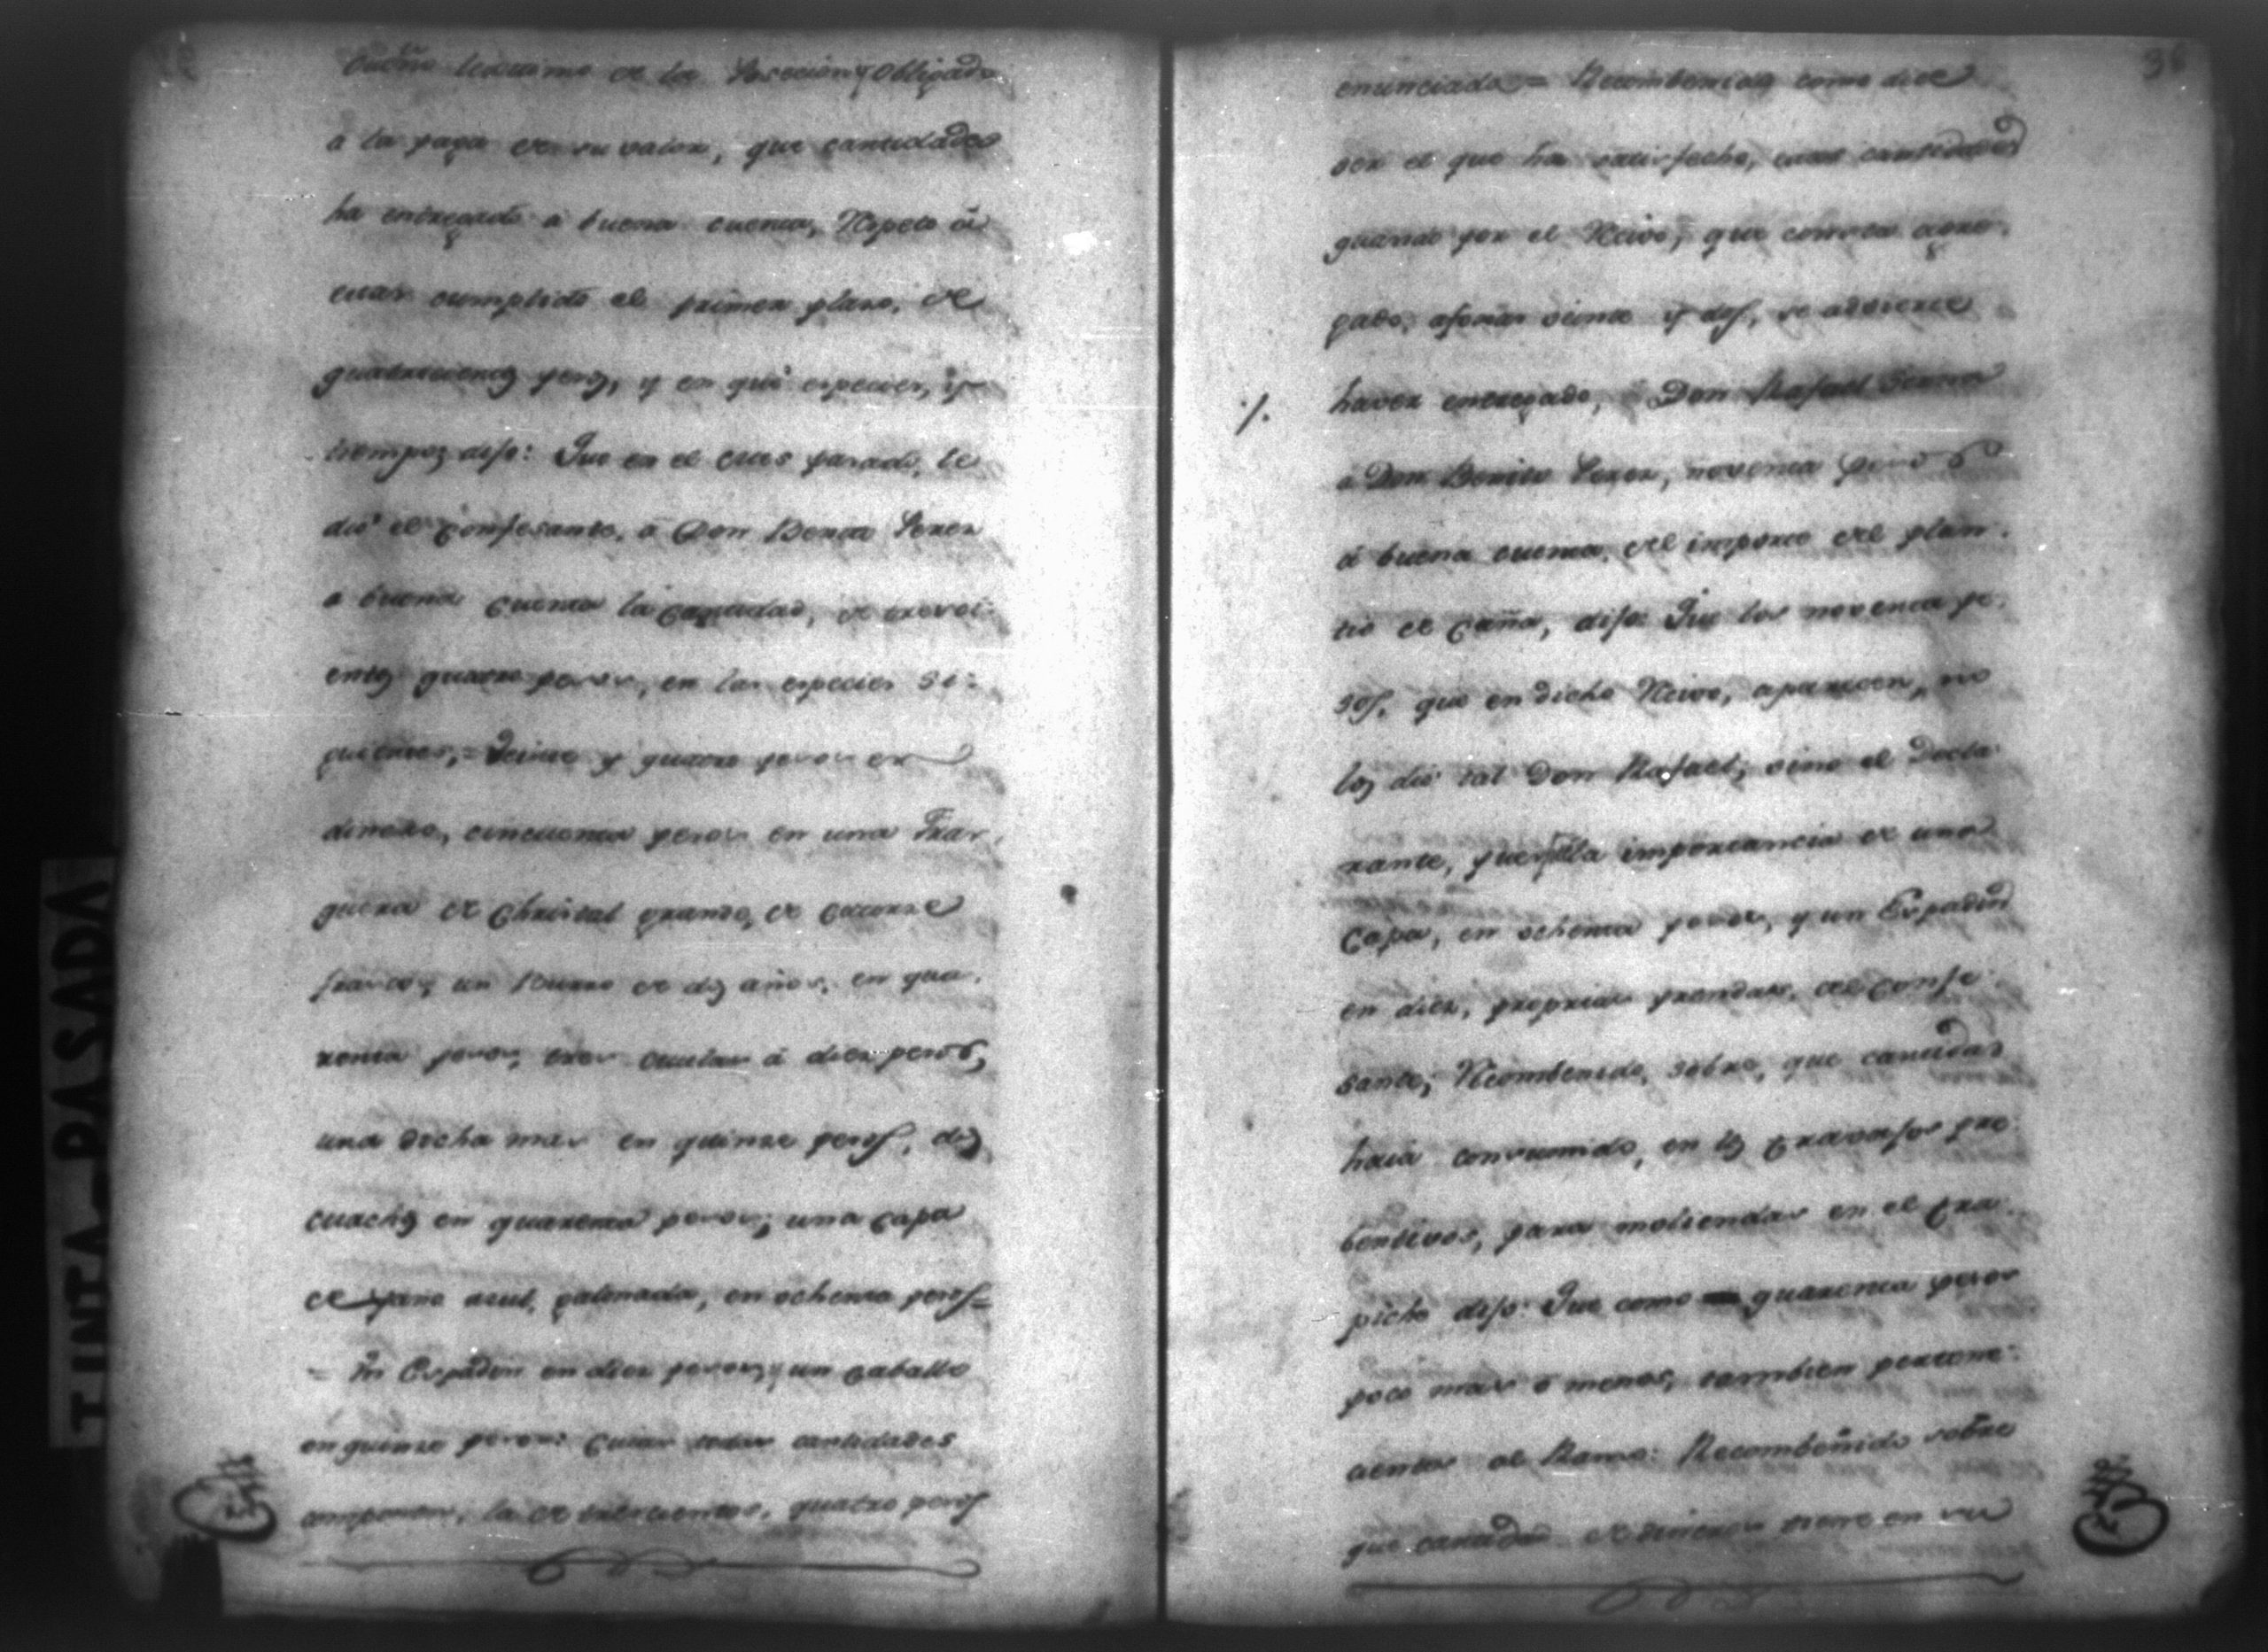 Dueño lexitimo de la Posecion y obligado
a la paga de su valor, que cantidades
ha entregado a buena cuenta, Respeto á
estar cumplido el primer plazo, de
quatrocientos pesos, y en qué especies, y
tiempos dijo: Que en el mes pasado, le
dió el Confesante, a Don Benito Perez
a buena Cuenta la Cantidad, de tresci-
entos quatro pesos, en las especies si-
guientes, = Veinte y quatro pesos en
dinero, cincuenta pesos en una Fras-
quera de Christal grande, de Catorze
frascos, un Burro de dos años, en qua-
renta pesos, tres mulas á diez pesos,
una dicha mas en quinze pesos, dos
machos en quarenta pesos; una Capa
de paño azul, galonada, en ochenta pesos=
= Un Espadin en diez pesos, y un Caballo
en quinze pesos: Cuias todas cantidades
componen, la de trescientos, quatro pesos
TINTA-PASADA
36
enunciados = Recombenido como dice
ser el que ha satisfecho, esas cantidades
quando por el Recivo, que consta agre-
gado, afojas veinte y dos, se advierte
./. haver entregado, Don Rafael
a Don Benito Perez, noventa pesos
á buena cuenta, del importe del plan-
tio de Caña, dijo: Que los noventa pe-
sos, que en dicho Recivo, aparecen, no
los dió tal Don Rafael; sino el Decla-
rante, pues es la importancia de una
Capa, en ochenta pesos, y un Espadin
en diez, proprias prendas, del Confe-
sante; Recombenido, sobre, que cantidad
havia consumido, en los
bentivos, para moliendas en el tra-
piche dijo: Que como quarenta pesos
poco mas o menos, tambien pertene-
cientes al Ramo: Recombenido sobre
que cantidad de dinero tiene en su